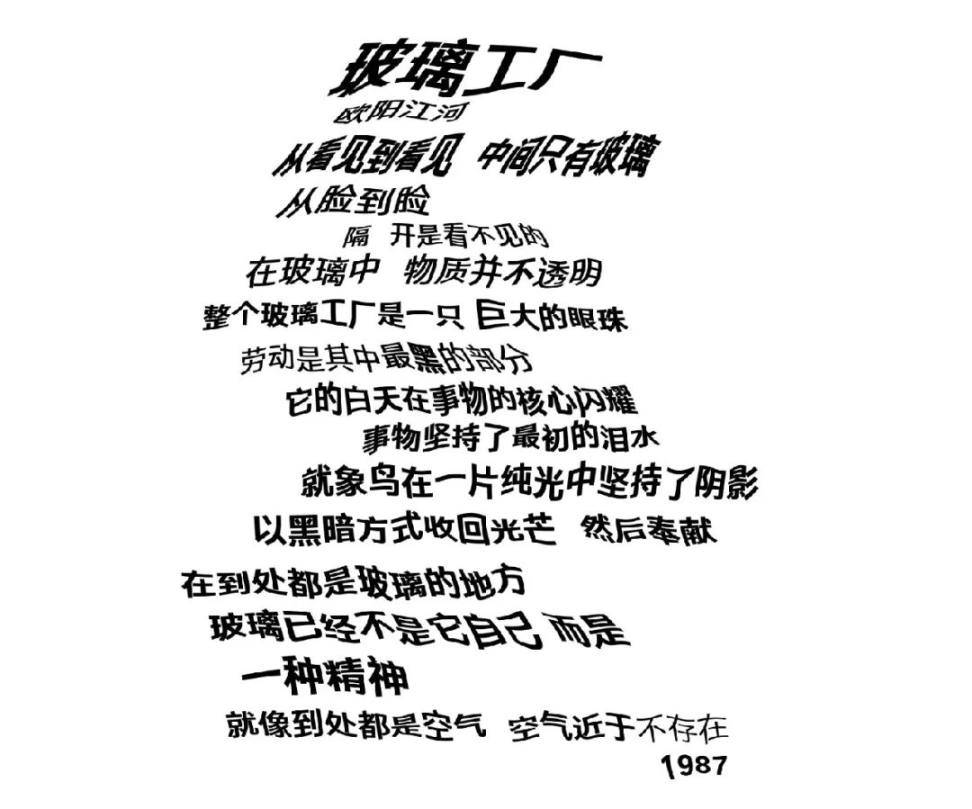 玻璃工厂
欧阳江河
从看见到看见 中间只有玻璃
从脸到脸
隔 开是看不见的
在玻璃中 物质并不透明
整个玻璃工厂是一只 巨大的眼珠
劳动是其中最黑的部分
它的白天在事物的核心闪耀
事物坚持了最初的泪水
就象鸟在一片纯光中坚持了阴影
以黑暗方式收回光芒 然后奉献
在到处都是玻璃的地方
玻璃已经不是它自己 而是
一种精神
就像到处都是空气 空气近于不存在
1987